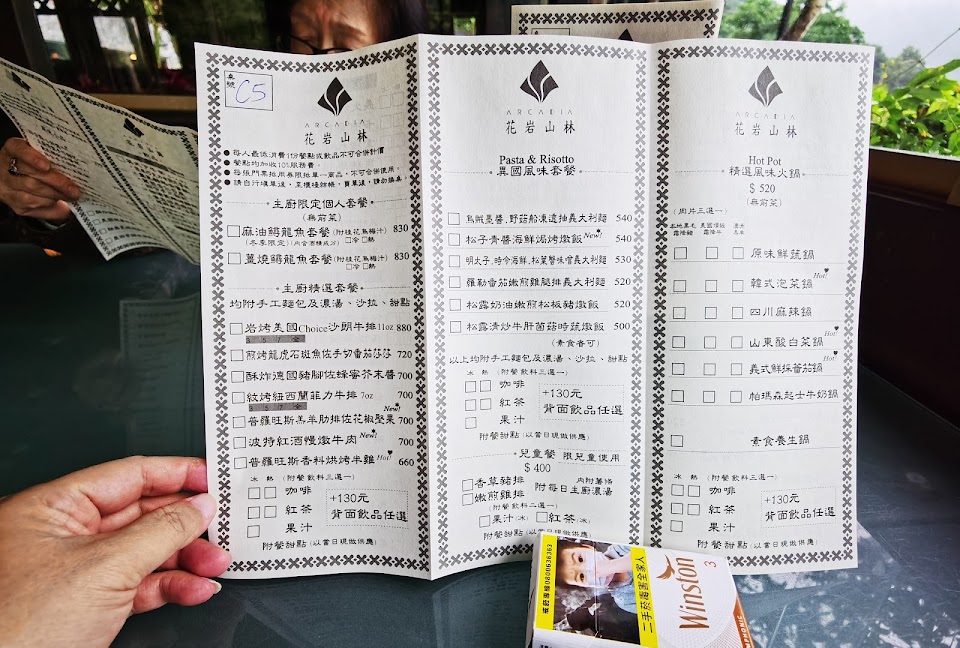 桌號 C5
ARCADIA
花岩山林
●每人最低消費1份餐點或飲品不可合併計價
●餐點均加收10%服務費。
●每張門票抵用券限抵單一商品,不可合併使用。
●請自行填單後,至櫃檯結帳,買單後,請勿換桌。
·主廚限定個人套餐·
(無前菜)
麻油鱘龍魚套餐(附桂花烏梅汁) 830
(冬季限定)(內含酒精成分) 冷 熱
薑燒鱘龍魚套餐(附桂花烏梅汁) 830
冷 熱
·主廚精選套餐·
均附手工麵包及濃湯、沙拉、甜點
岩烤美國Choice沙朗牛排11oz 880
3 5 7 全
煎烤龍虎石斑魚佐手切番茄莎莎 720
酥炸德國豬腳佐蜂蜜芥末醬 700
紋烤紐西蘭菲力牛排 7oz 700
3 5 7 全
普羅旺斯羔羊肋排佐花椒堅果 New! 700
波特紅酒慢燉牛肉 New! 700
普羅旺斯香料烘烤半雞 Hot! 660
冰 熱 (附餐飲料三選一)
咖啡
紅茶
果汁
+130元
背面飲品任選
附餐甜點(以當日現做供應)
ARCADIA
花岩山林
Pasta & Risotto
·異國風味套餐·
烏賊墨醬,野菇船凍透抽義大利麵 540
松子青醬海鮮焗烤燉飯 New! 540
明太子,時令海鮮,松葉蟹味噌義大利麵 530
羅勒番茄嫩煎雞腿排義大利麵 520
松露奶油嫩煎松板豬燉飯 520
松露清炒牛肝菌菇時蔬燉飯 500
(素食者可)
以上均附手工麵包及濃湯、沙拉、甜點
冰 熱 (附餐飲料三選一)
咖啡
紅茶
果汁
+130元
背面飲品任選
附餐甜點(以當日現做供應)
·兒童餐 限兒童使用
$ 400
香草豬排
嫩煎雞排
內附薯條
附每日主廚濃湯
(附餐飲料二選一)
果汁(冰) 紅茶(冰)
附餐甜點(以當日現做供應)
ARCADIA
花岩山林
Hot Pot
·精選風味火鍋·
$ 520
(無前菜)
(肉片三選一)
本地黑毛霜降豬 美國頂級霜降牛
原味鮮蔬鍋
韓式泡菜鍋 Hot!
四川麻辣鍋
山東酸白菜鍋 Hot!
義式鮮採番茄鍋 Hot!
帕瑪森起士牛奶鍋
素食養生鍋
冰 熱 (附餐飲料三選一)
咖啡
紅茶
果汁
+130元
背面飲品任選
附餐甜點(以當日現做供應)
戒菸專線0800636363
二手菸害全家人
Winston
3